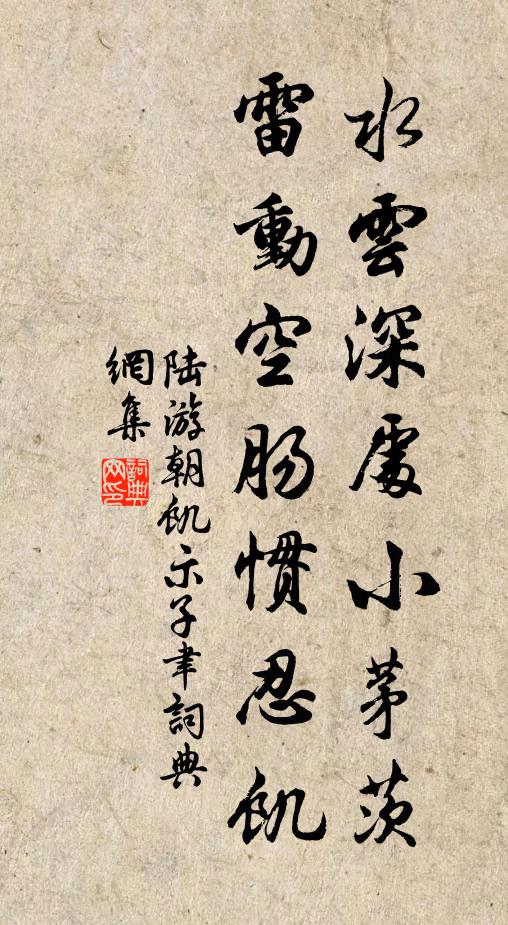 水雲深處小茅茨
雷動空肠慣忍飢
陆游朝飢示子聿詞典
網集
詞典网印